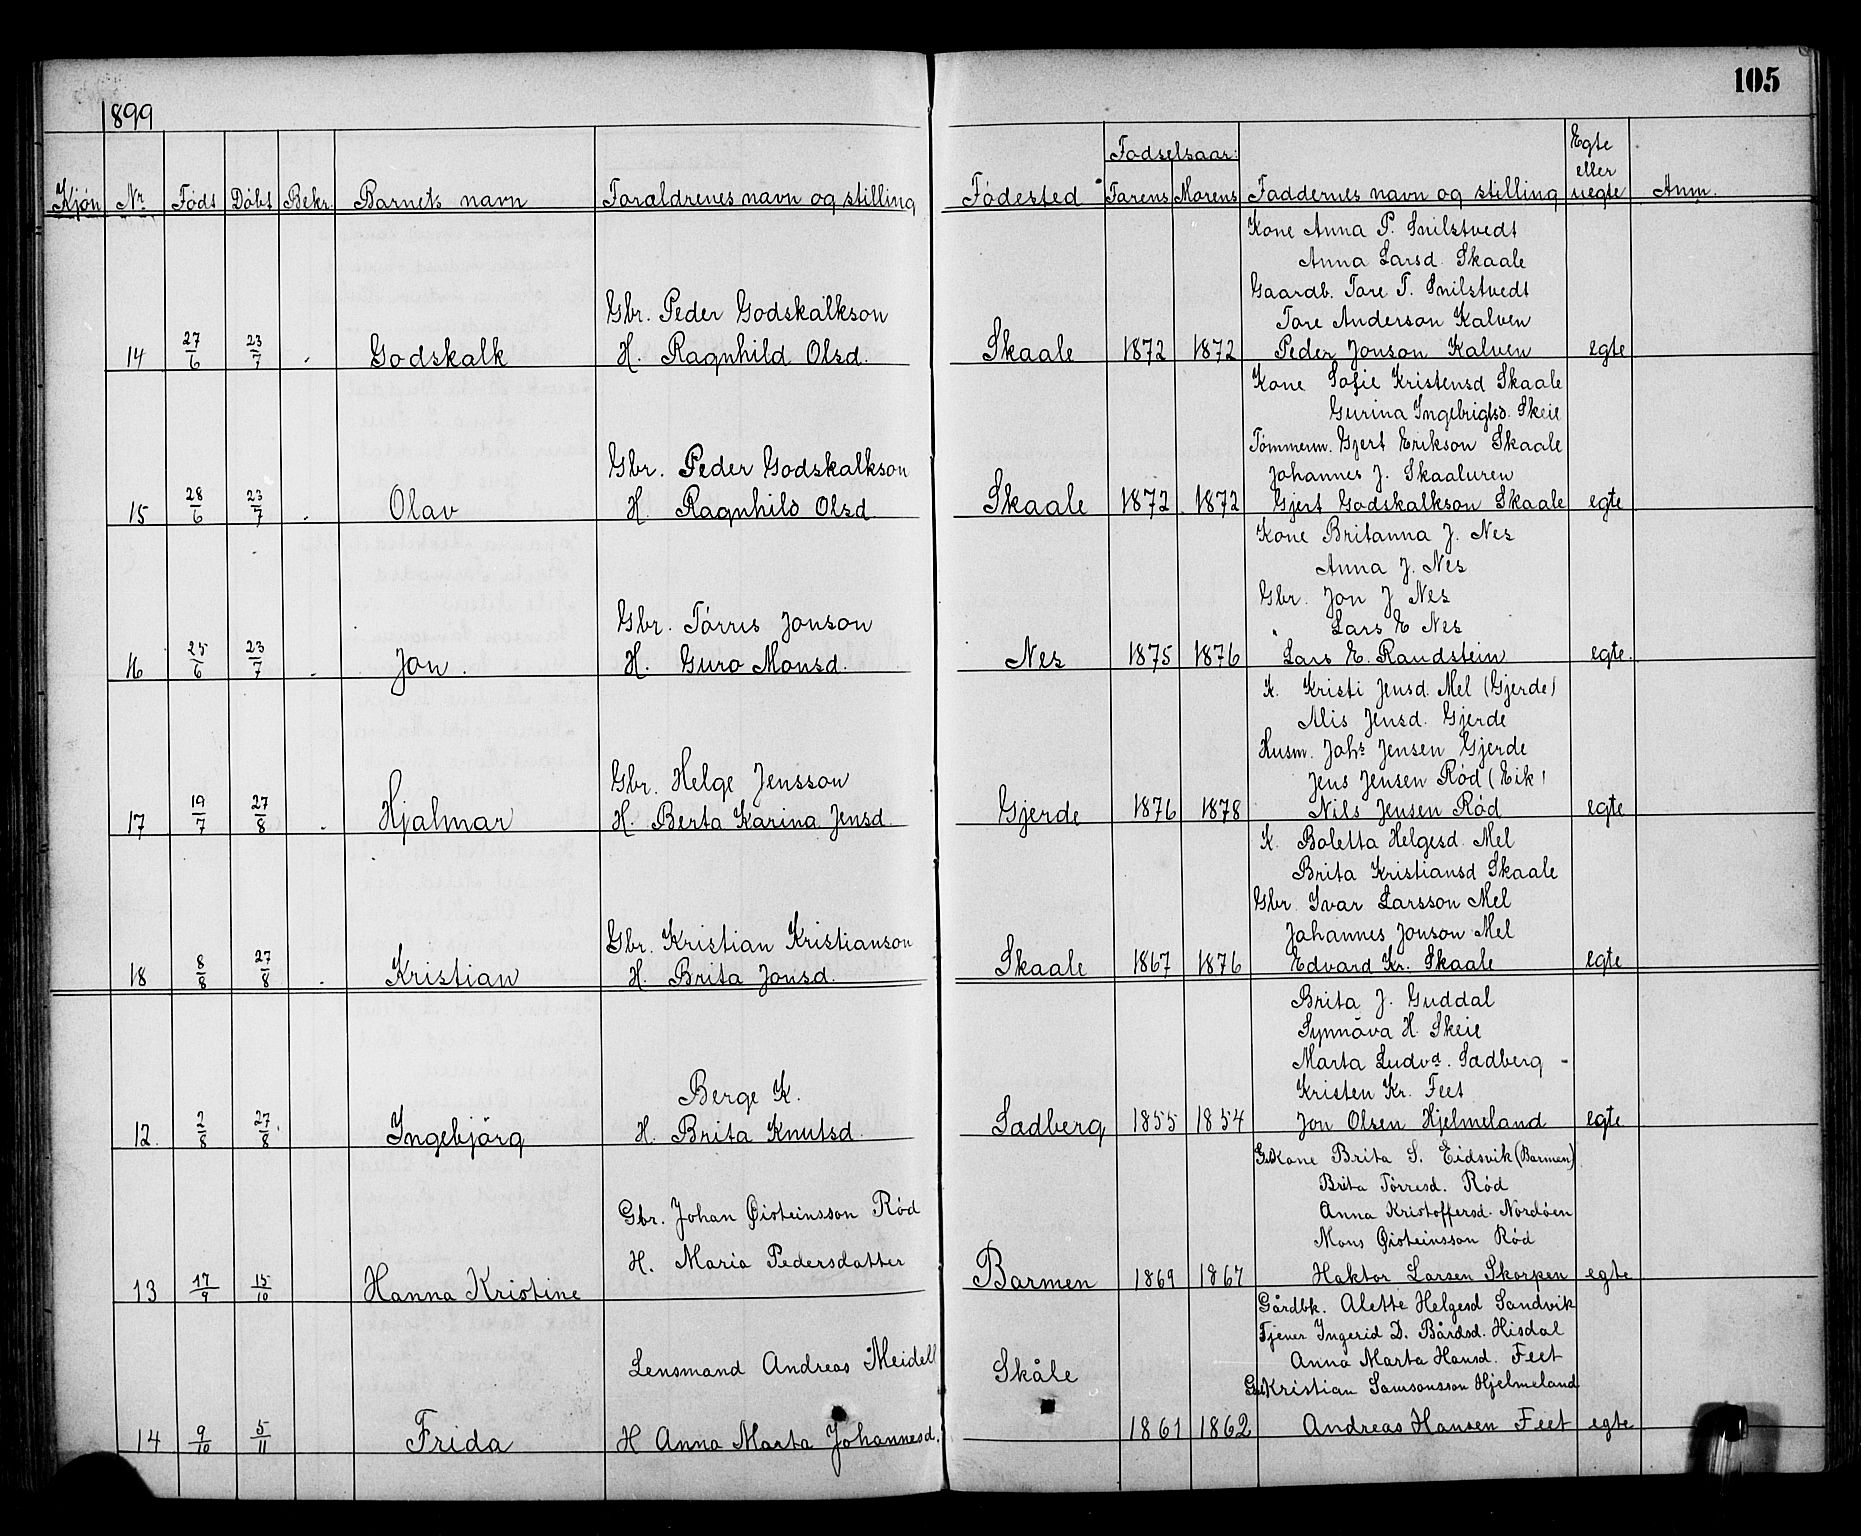 105
1899
Kjön Nr Föds Döbt Bekr. Barnets navn Forældrenes navn og stilling Födested Fødselsaar: Farens Morens Faddernes navn og stilling Egte eller uegte Anm.
Kone Anna P. Snilstvedt
Anna Larsd. Skaale
Gaardb. Tore T. Snilstvedt
Gbr. Peder Godskalkson
Tore Anderson Kalven
14 27/6 23/7 Godskalk H. Ragnhild Olsd. Skaale 1872 1872 Peder Jonson Kalven egte
Kone Sofie Kristensd Skaale
Gurina Ingebrigtsd. Skeie
Tømmerm. Gjert Erikson Skaale
Gbr. Peder Godskalkson
Johannes J. Skaaluren
15 28/6 23/7 Olav H. Ragnhild Olsd Skaale 1872 1872 Gjert Godskalkson Skaale egte
Kone Britanna J. Nes
Anna J. Nes
Gbr. Jon J Nes
Gbr. Törris Jonson
Lars E Nes
16 25/6 23/7 Jon. H. Guro Monsd. Nes 1875 1876 Lars E. Raudstein egte.
K. Kristi Jensd. Mel (Gjerde)
Alis Jensd. Gjerde
Husm. Johs Jensen Gjerde
Gbr. Helge Jensson
Jens Jensen Röd (Eik)
17 19/7 27/8 Hjalmar H. Berta Karina Jensd. Gjerde 1876 1878 Nils Jensen Röd egte
K. Boletta Helgesd. Mel
Brita Kristiansd Skaale
Gbr Ivar Larsson Mel
Gbr. Kristian Kristianson
Johannes Jonson Mel
18 8/8 27/8 Kristian H. Brita Jonsd. Skaale 1867 1876 Edvard Kr. Skaale egte
Brita J. Guddal
Synnöva H. Skeie
Marta Ludvd. Sædberg -
Berge K.
Kristen Kr. Feet
12. 2/8 27/8 Ingebjörg H. Brita Knutsd. Sædberg 1855 1854 Jon Olsen Hjelmeland egte
Kone Brita S. Eidsvik (Barmen)
Brita Törresd. Röd
Gbr. Johan Øisteinsson Röd
Anna Kristoffersd. Nordöen
Mons Øisteinsson Röd
13 17/9 15/10 Hanna Kristine H. Maria Pedersdatter Barmen 1869 1867 Haktor Larsen Skorpen egte
Gårdbk. Alette Helgesd Sandvik
Tjener Ingerid D. Bårdsd. Hisdal
Lensmand Andreas Meidell Skåle
Anna Marta Hansd. Feet
Kristian Samsonsson Hjelmeland
14 9/10 5/11 Frida H Anna Marta Johannesd. 1861 1862 Andreas Hansen Feet egte